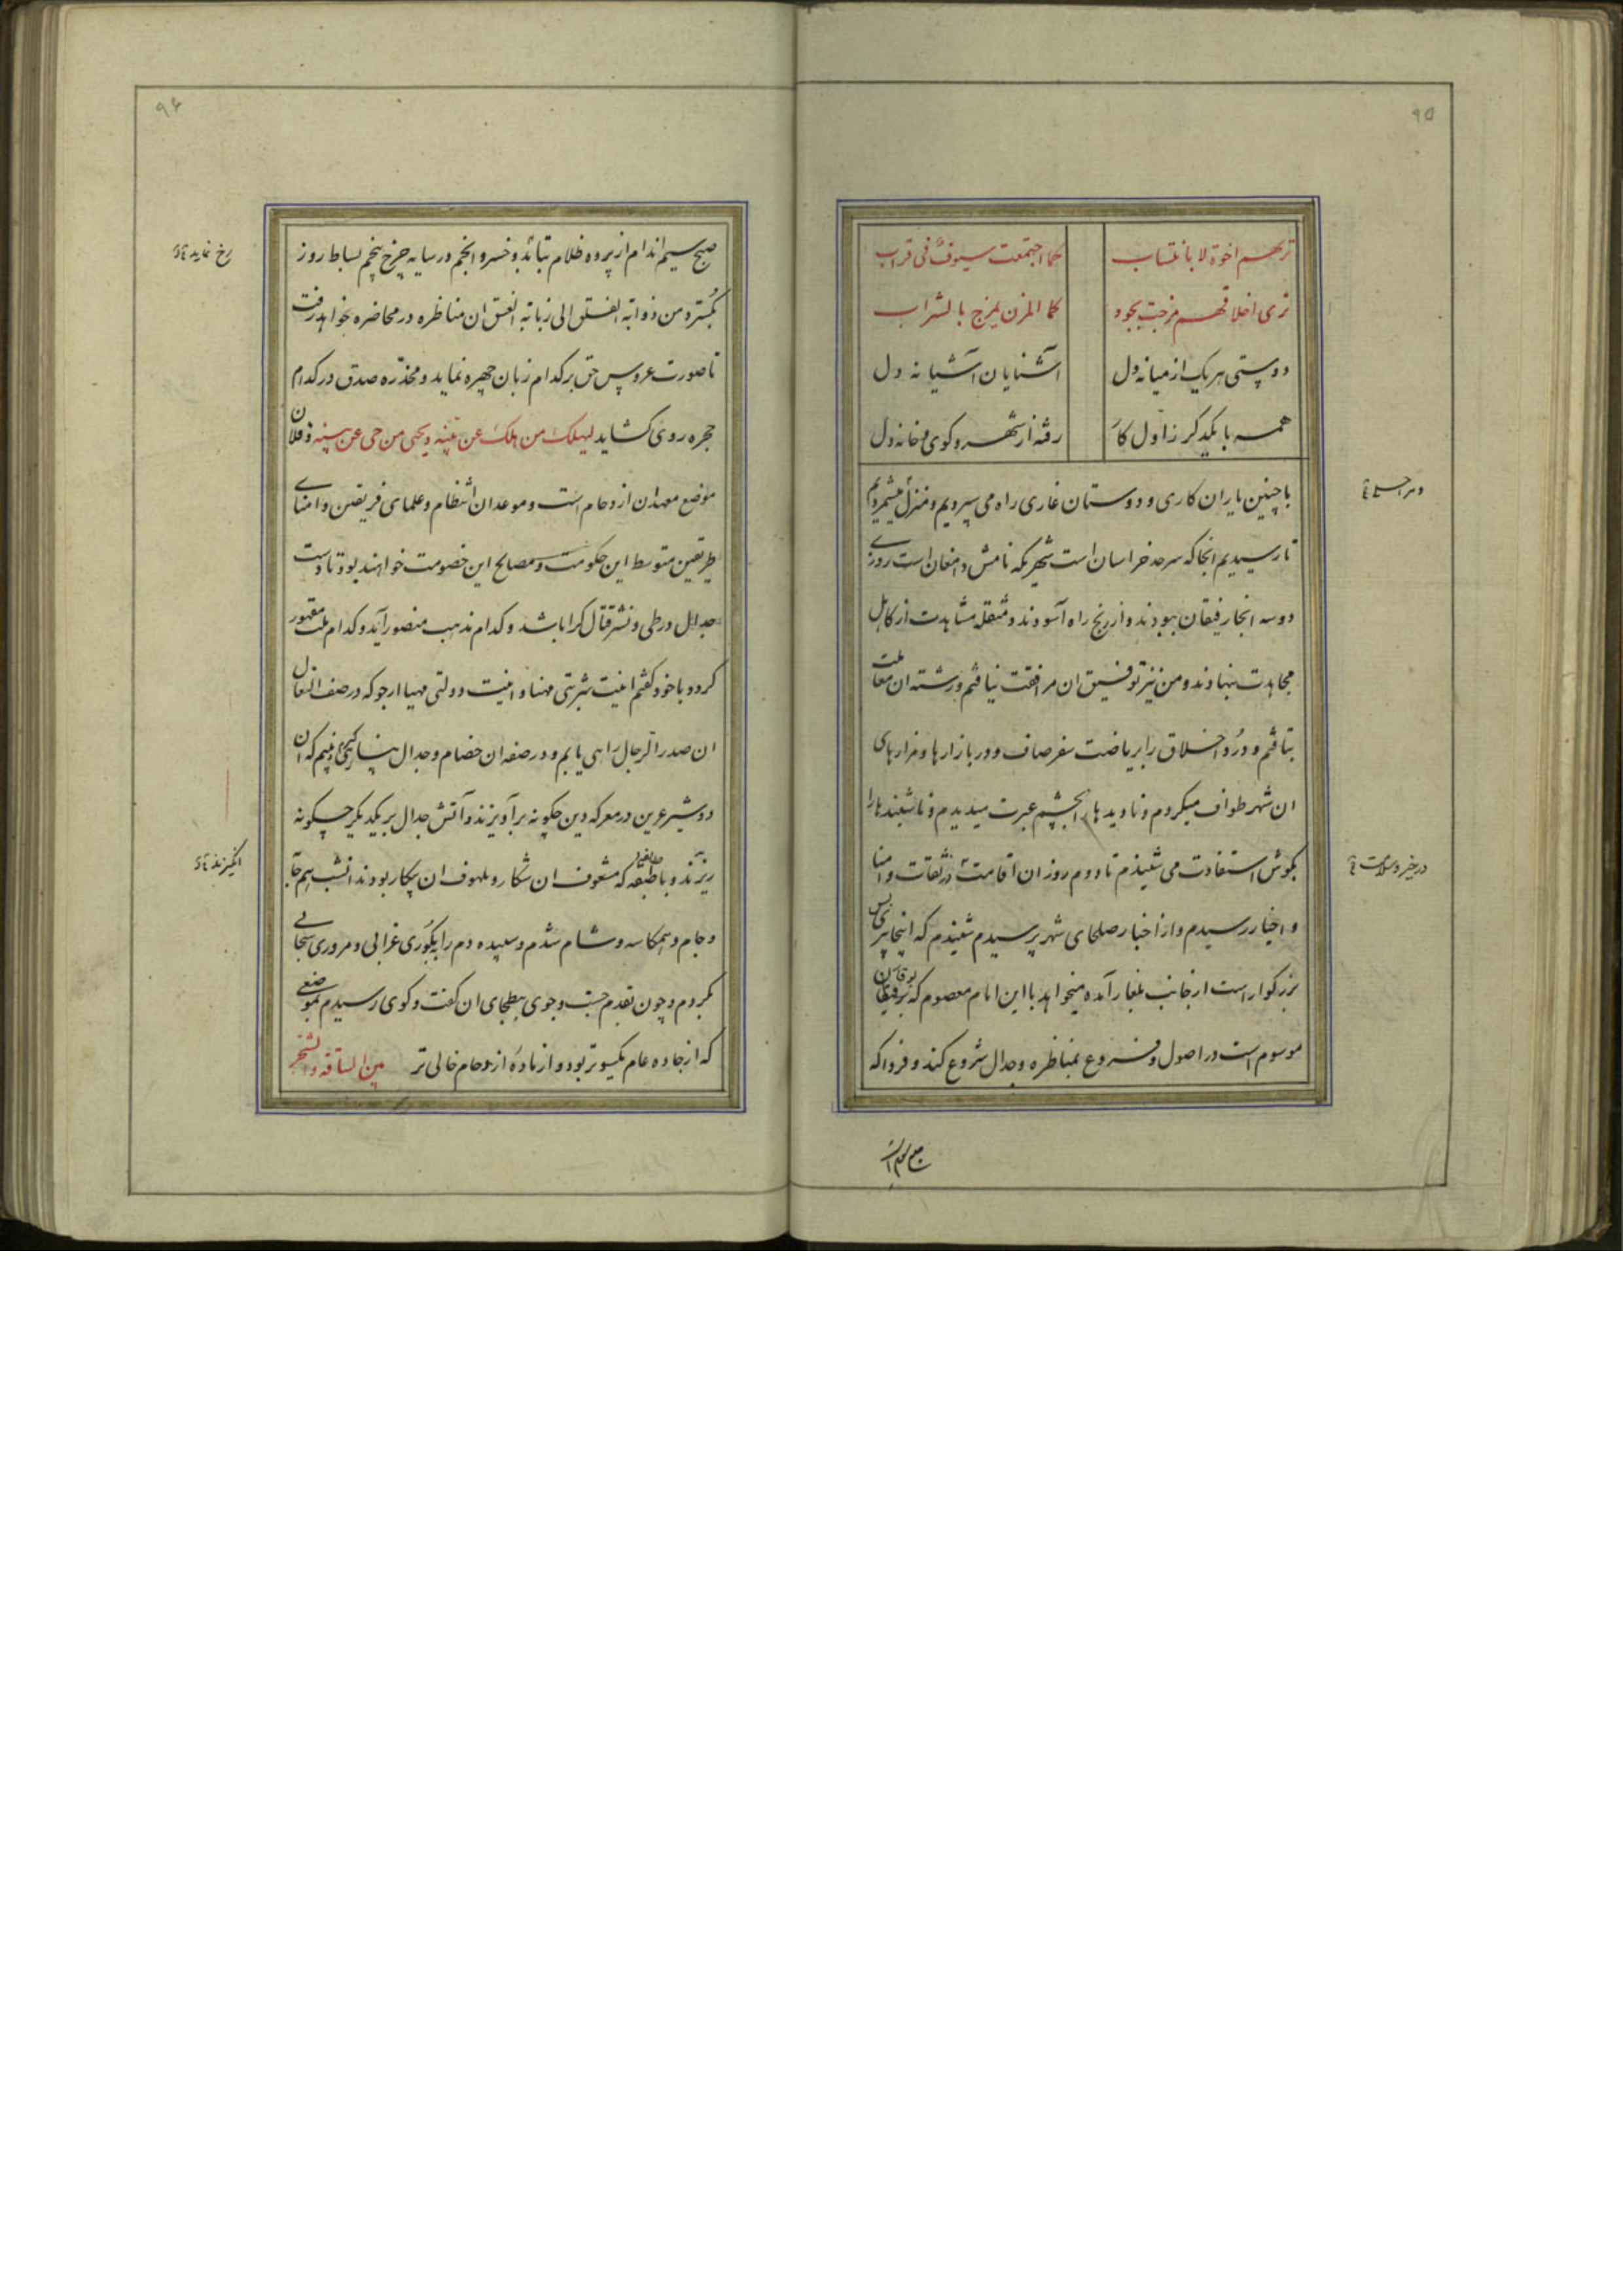 ۹۵
ترٮهم اخوة لا بانتساب کما اجتمعت سیوف فی قراب
تری اخلاقهم مزجت بجود کما المزن یمزج بالشراب
دوستی هریک از میانه دل آشنایان آشیانه دل
همه با یکدگر ز اول کار رفته از شهر و کوی و خانه دل
با چنین یاران کاری و دوستان غاری راه می سپردیم و منزل میشمردیم
تا رسیدیم انجا که سرحد خراسان است شهریکه نامش دامغان است روزی
دو سه انجا رفیقان ببودند و از رنج راه آسودند و مثقله مشاهدت از کاهل
مجاهدت بنهادند و من نیز توفیق ان مرافقت نیافتم و رشته ان معاملت
بتافتم و درد اخلاق را بریاضت سفر صاف و در بازارها و مزارهای
ان شهر طواف میکردم و نادیدها را بچشم عبرت میدیدم و ناشنیدها را
بگوش استفادت می شنیدم تا دوم روز ان اقامت از ثقات و امنا
و اخبار رسیدم و از اخبار صلحای شهر پرسیدم شنیدم که اینجا پیری بس
بزرگوار است از جانب بلغار آمده میخواهد با این امام معصوم که بوقلمون
موسوم است در اصول و فروع بمناظره و جدال شروع کند و فردا که
۹۶
صبح سیم اندام از پرده ظلام بتابد و خسرو انجم در سایه چرخ پنجم بساط روز
بگسترد من ذوابة الفلق الی زبانة الغسق ان مناظره در محاضره بخواهد رفت
تا صورت عروس حق بر کدام زبان چهره نماید و مخدره صدق در کدام
حجره روی کشاید لیهلک من هلک عن بینه و یحیی من حی عن بینه و فلان
موضع معهد ان ازدحام است و موعد ان انتظام و علمای فریقین و امنای
طریقین متوسط این حکومت و مصالح این خصومت خواهند بود تا دست
جدال در طی و نشر قتال کرا باشد و کدام مذهب منصور آید و کدام ملت مقهور
گردد با خود گفتم اینت شربتی مهنا و اینت دولتی مهیا ارجو که در صف النعال
ان صدر الرجال راهی یابم و در صفه ان خصام و جدال پناه گیرم و ببینم که ان
دو شیر عرین در معرکه دین چگونه برآویزند و آتش جدال بر یکدیگر چگونه
ریزند و با طایفه که مشعوف ان شکار و ملهوف ان پیکار بودند انشب هم جام
و جام و همکاسه و شام شدم و سپیده دم را بکوری غرابی و مروری سحابی
بکردم و چون بقدم جست و جوی ببطحای ان گفت و گوی رسیدم بموضعی
که از جاده عام یکسوتر بود و از ماده ازدحام خالی تر بین الساقة و الشجر
رخ نماید
انگیزند